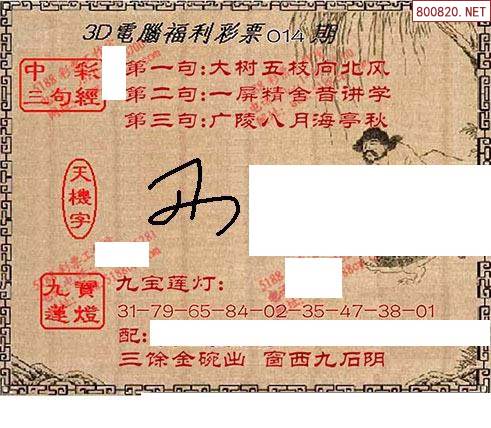 800820.NET
3D電腦福利彩票014期
中彩三句經
第一句:大树五枝向北风
第二句:一屏精舍昔讲学
第三句:广陵八月海亭秋
天機字
九寶蓮燈
九宝莲灯:
31-79-65-84-02-35-47-38-01
配:
三馀金碗出 窗西九石阴